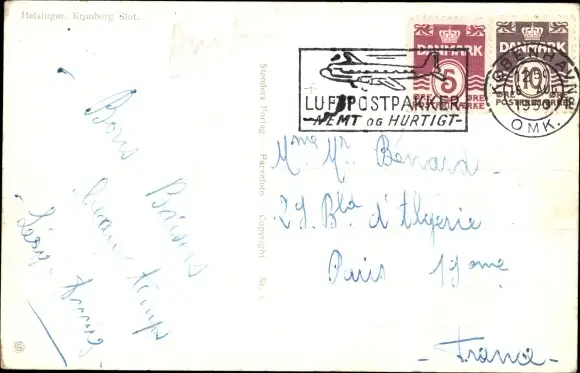 Helsingør. Kronborg Slot.
Bons Baisers
beau temps
Stenders Forlag - Farvefoto Copyright Nr.
DANMARK
5
ØRE ØRE
DANMARK
10
KØBENHAVN
1950
OMK.
LUFTPOSTPAKKER
-NEMT OG HURTIGT-
Mme Mr Benard
29 Bld d'Algérie
Paris 19ème
- France -